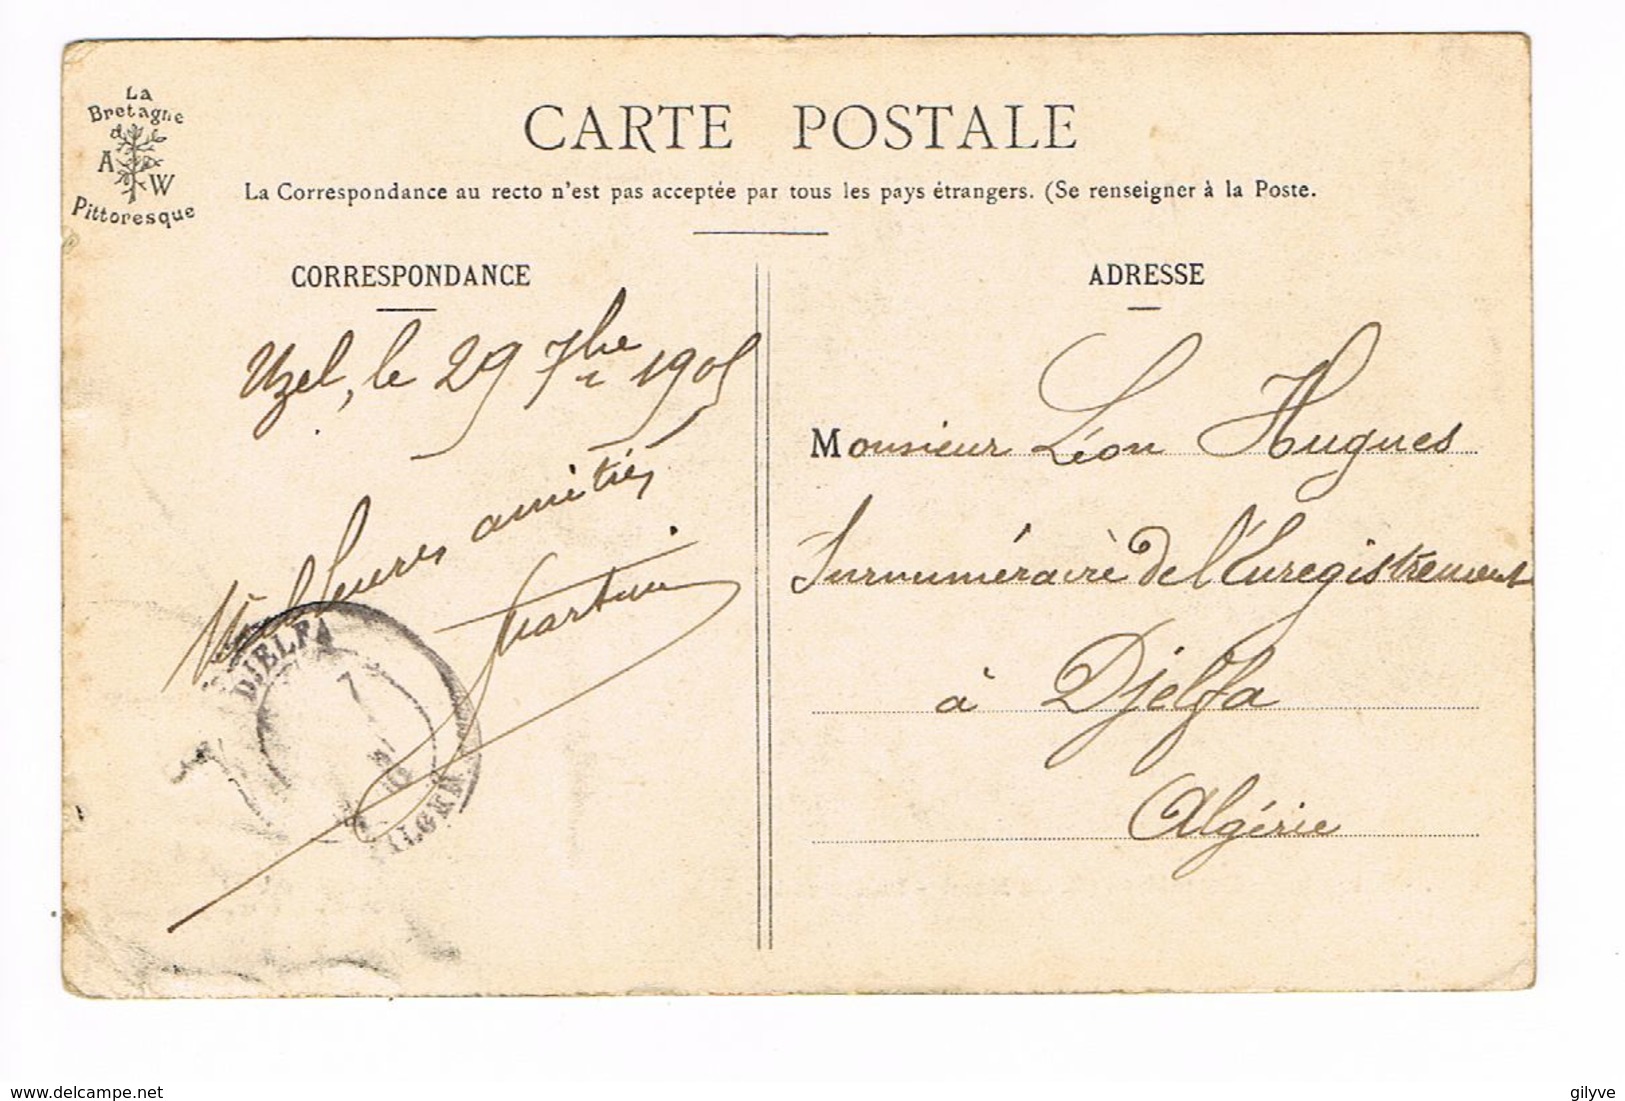 La
Bretagne
A W
Pittoresque
CARTE POSTALE
La Correspondance au recto n'est pas acceptée par tous les pays étrangers. (Se renseigner à la Poste.
CORRESPONDANCE
Uzel, le 29 7bre 1905
Meilleures amitiés
Martin
DJELFA
7
ALGER
ADRESSE
Monsieur Léon Hugues
Surnuméraire de l'Enregistrement
à Djelfa
Algérie
delcampe.net
gilyve